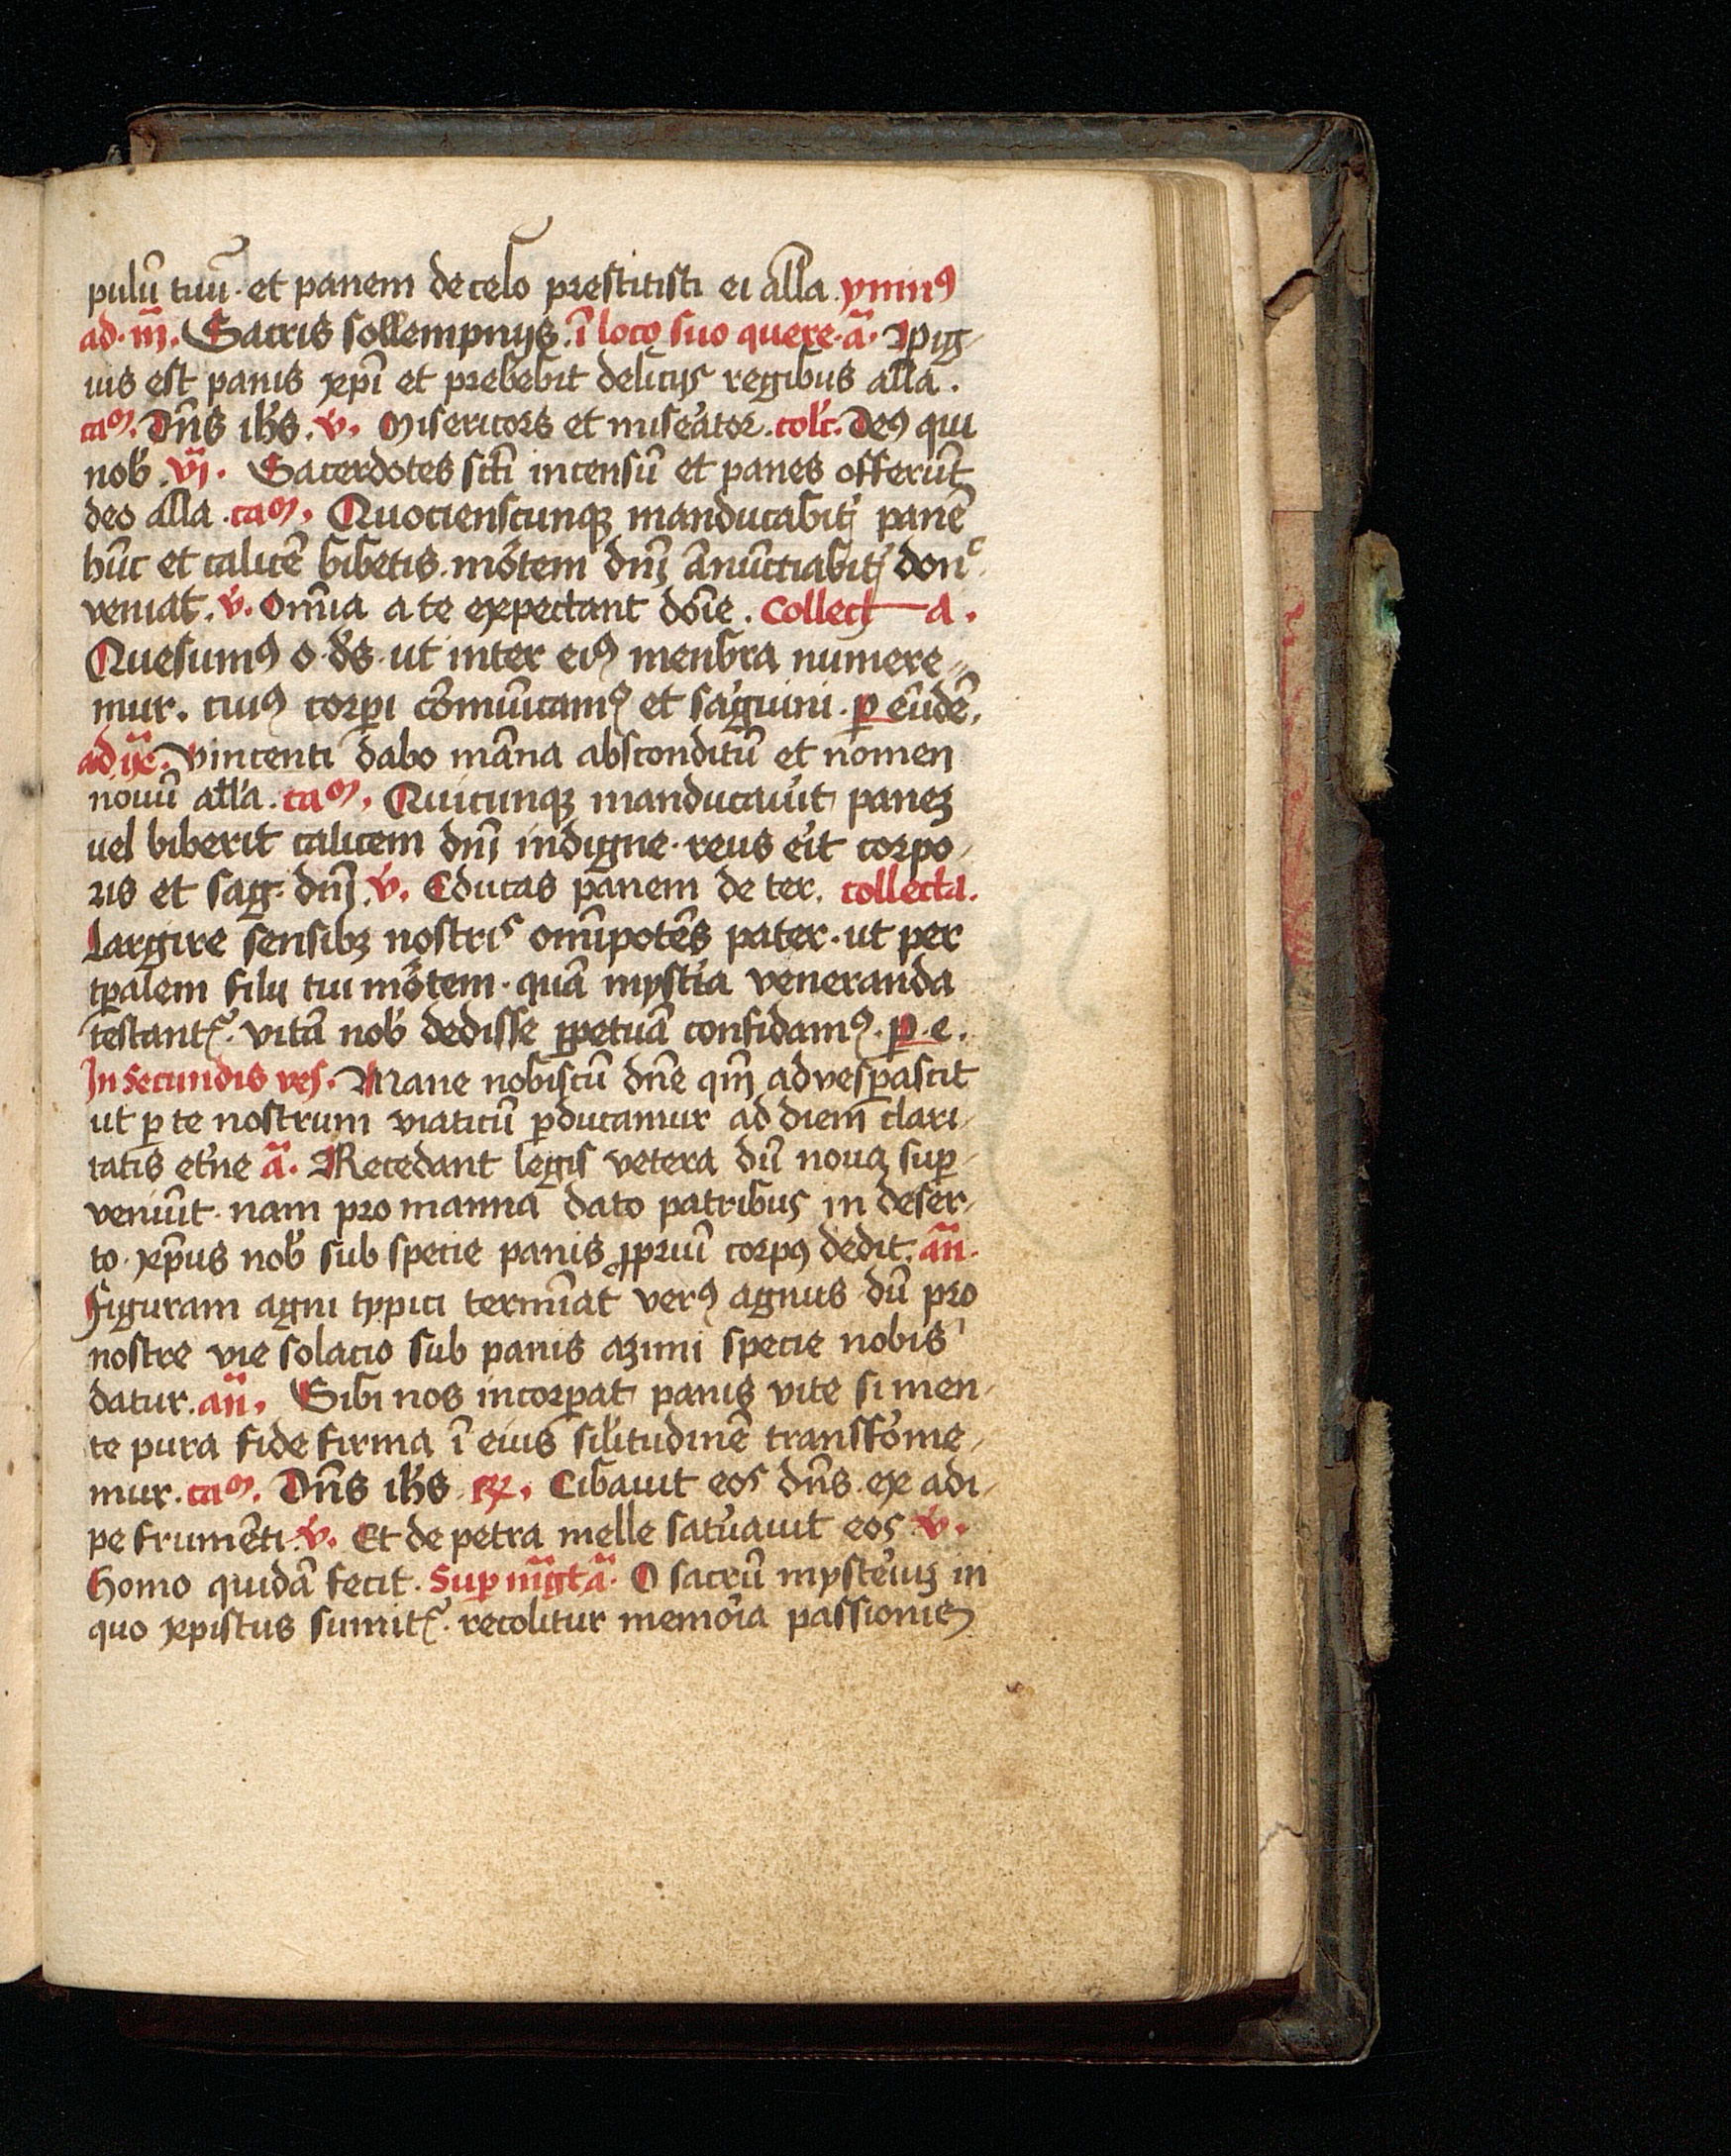 pulū tuū · et panem de celo prestitisti ei alła . ymnꝰ
ad · iij . Sacris sollempnijs . ī loco suo quere · ā · Pig-
uis est panis xp̄i et prebebit delicijs regibus alła .
caꝫ . Dn̄s ih̄s . v̓ . Misericors et mise̓ator . col̓c . Deꝰ qui
nob̓ . vj . Sacerdotes sc̄ti incensū et panes offerūt
deo alła . caꝫ . Quociensc̄unqꝫ manducabitꝭ panē
hūc et calicē bibetis . mo̓tem dn̄j ānūctiabitꝭ donᶜ
veniat . v̓ . Om̄ia a te expectant do̓ie . Collect — a .
Quesumꝰ o · d̓s · ut inter eiꝰ menbra numere-
mur . cuiꝰ corꝑi cōmūicamꝰ et sāguini . ꝑ eūdē .
ad ix̄ . Vincenti dabo māna absconditū et nomen
nouū alła . caꝫ . Quicunqꝫ manducau̓it paneꝫ
uel biberit calicem dn̄j indigne · reus e̓it corpo-
ris et sag · dn̄j . v̓ . Educas panem de ter . collecta .
Largire sensibꝫ nostris om̄ipotēs pater · ut per
tꝑalem filij tui mo̓tem · quā myst̓ia veneranda
testantᷣ · vitā nob̓ dedisse ꝑpetuā confidamꝰ . ꝑ . e .
In secundis ves . Mane nobiscū dn̄e qm̄ advesꝑascit
ut ꝑ te nostrum viaticū ꝑducamur ad diem clari-
tatis et̓ne ā . Recedant legis vetera dū noua suꝑ-
veniūt · nam pro manna dato patribus in deser-
to · xp̄us nob̓ sub specie panis ꝓpriū corpꝰ dedit . an̄ .
Figuram agni typici termīat verꝰ agnus dū pro
nostre vie solacio sub panis azimi specie nobis
datur . an̄ . Sibi nos incorꝑat panis vite si men-
te pura fide firma ī eius sil̓itudinē transfo̓me-
mur . caꝫ . Dn̄s ih̄s . ℟ . Cibauit eos dn̄s ex adi-
pe frumēti . v̓ . Et de petra melle satu̓auit eos . v̓ .
Homo quidā fecit . Suꝑ m̄gt ā · O sacrū myste̓iuꝫ in
quo xpistus sumitᷣ · recolitur memo̓ia passionis